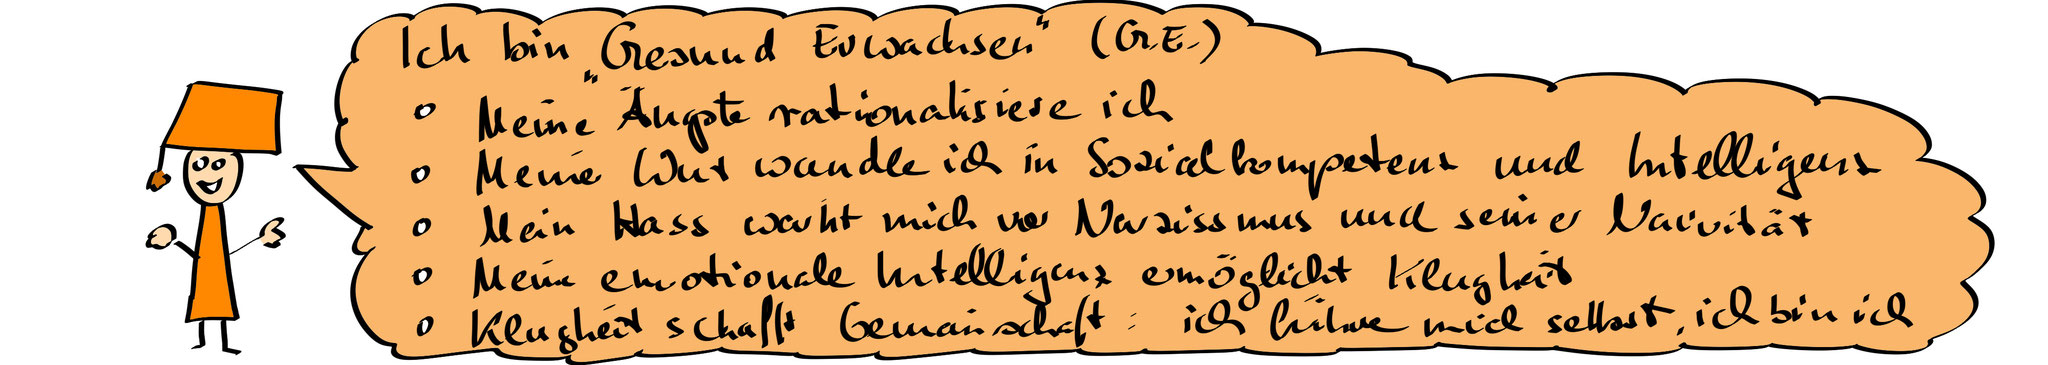 Ich bin „Gesund Erwachsen" (G.E.)
Meine Ängste rationalisiere ich
Meine Wut wandle ich in Sozialkompetenz und Intelligenz
Mein Hass warnt mich vor Narzissmus und seiner Naivität
Meine emotionale Intelligenz ermöglicht Klugheit
Klugheit schafft Gemeinschaft: ich führe mich selbst, ich bin ich